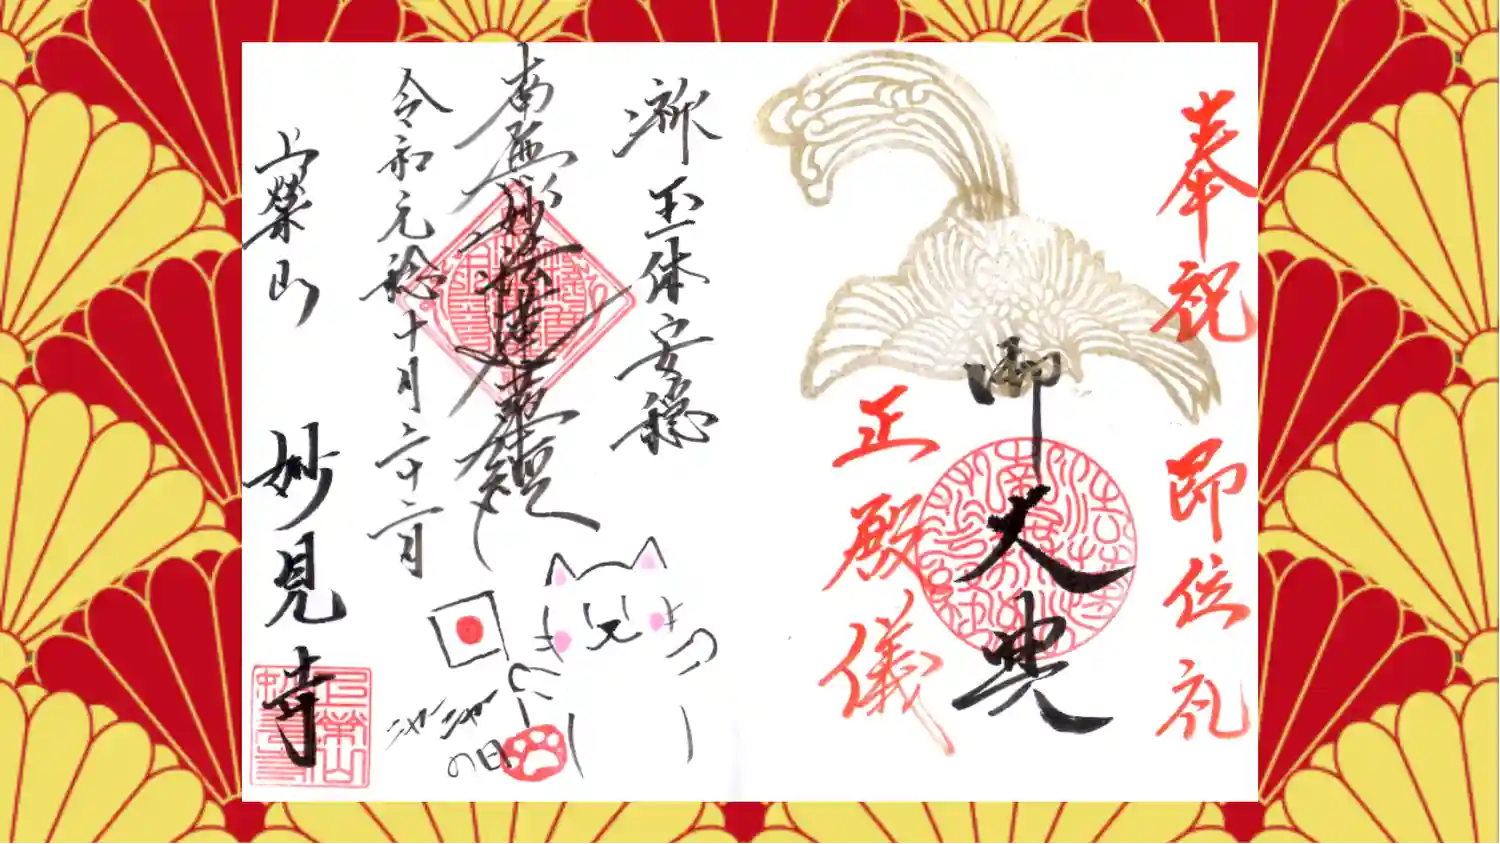 奉祝 即位礼
正殿儀
御大典
祈 玉体安穏
南無妙法蓮華経
令和元稔十月二十二日
ニャーニャー
の日
宗榮山 妙見寺